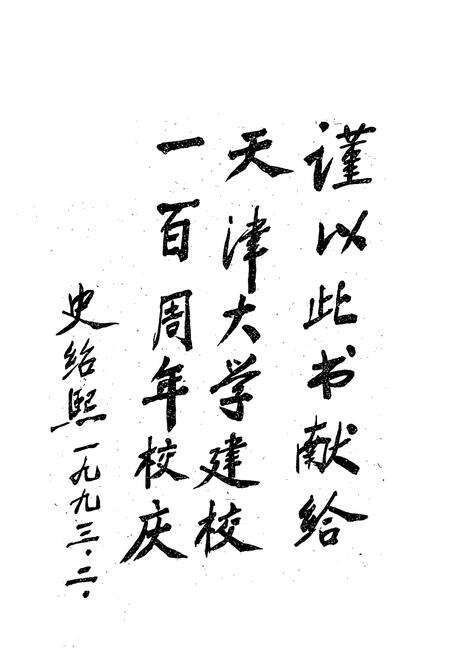 谨以此书献给
天津大学建校
一百周年校庆
史绍熙一九九三.二.